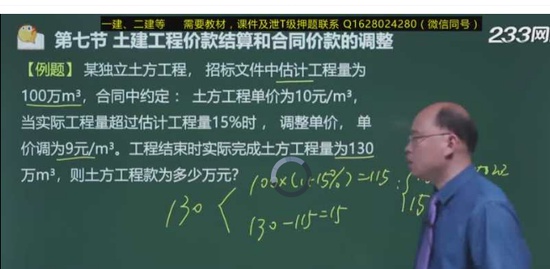 一建、二建等 需要教材，课件及泄T级押题联系 Q1628024280（微信同号）
第七节 土建工程价款结算和合同价款的调整
233网
【例题】某独立土方工程，招标文件中估计工程量为
100万m³，合同中约定：土方工程单价为10元/m³，
当实际工程量超过估计工程量15%时，调整单价，单
价调为9元/m³。工程结束时实际完成土方工程量为130
万m³，则土方工程款为多少万元？
130
=115
130-115=15
15